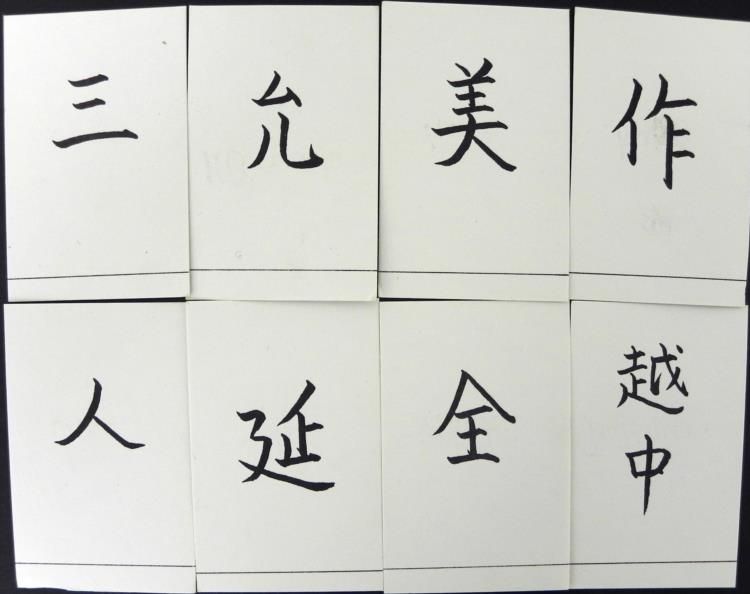 三 允 美 作
人 延 全 越中